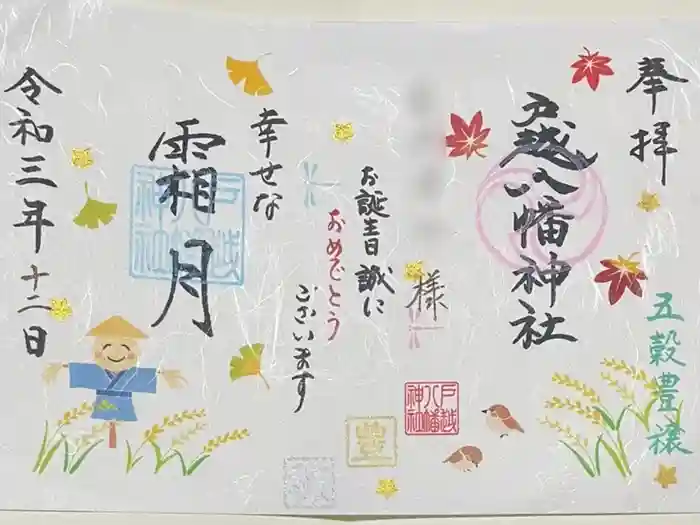 奉拝
五穀豊穣
戸越八幡神社
様
戸越八幡神社
お誕生日誠に
おめでとう
ございます
豊
幸せな
霜月
戸越八幡神社
令和三年十二日